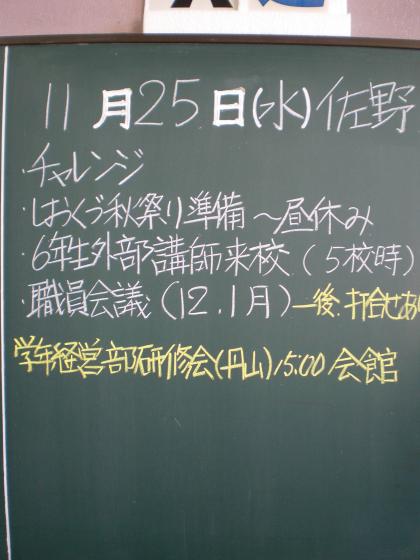 11月25日(水)佐野
・チャレンジ
・しおくづ秋祭り準備～昼休み
・6年生外部講師来校(5校時)
・職員会議(12.1月)―後.打合せあ
学年経営部研修会(丹山)15:00会館